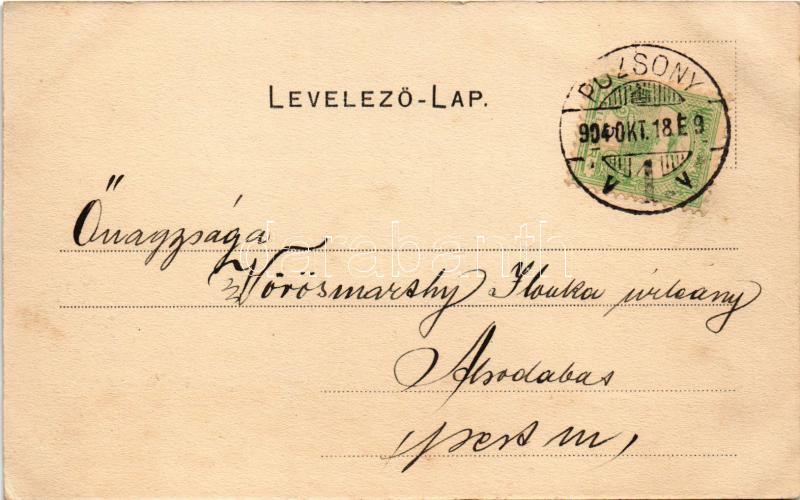 LEVELEZŐ-LAP.
POZSONY
904 OKT. 18 E 9
V 1 V
Őnagysága
Vörösmarthy Ilonka úrleány
Alsodabas
pest m,
darabanth